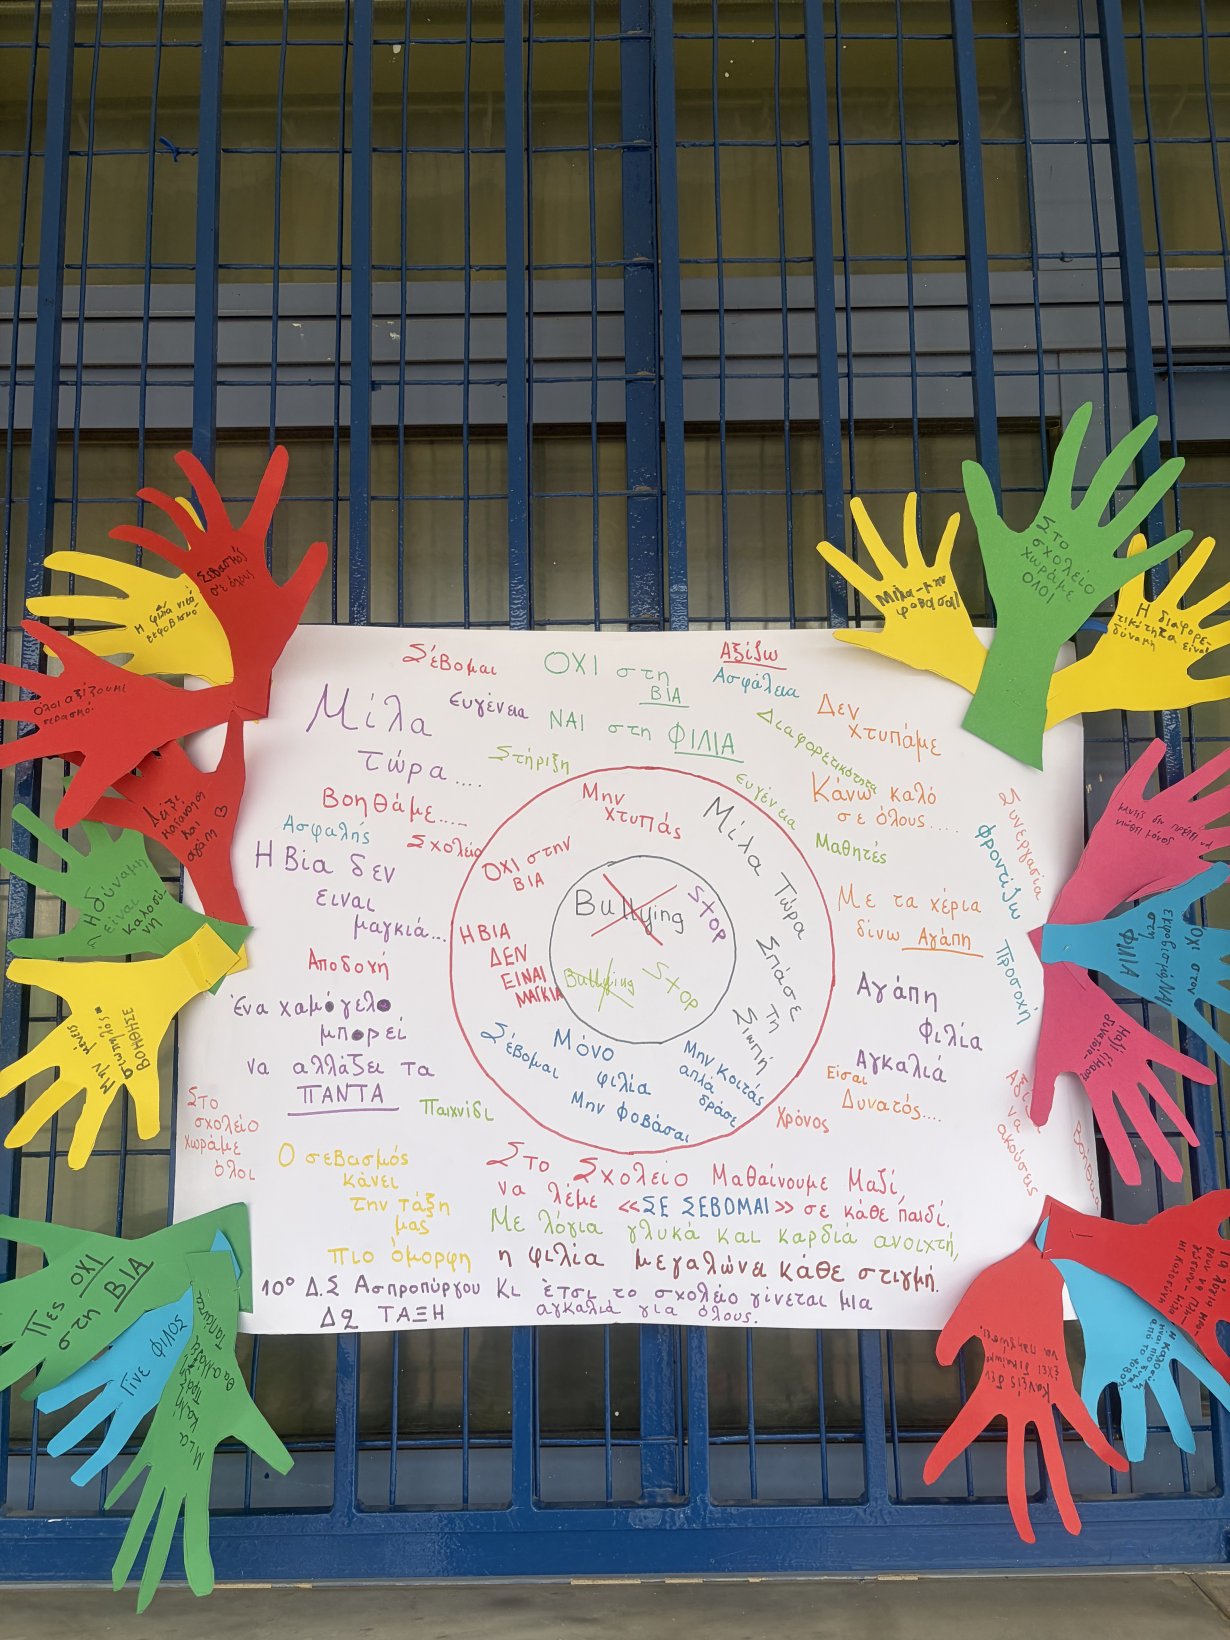 Σέβομαι
ΟΧΙ στη
ΒΙΑ
Αξίζω
Ασφάλεια
Μίλα
τώρα....
Ευγένεια
ΝΑΙ στη ΦΙΛΙΑ
Διαφορετικότητα
Δεν
χτυπάμε
Στήριξη
Βοηθάμε.....
Ασφαλής
Σχολείο
ευγένεια
Κάνω καλό
σε όλους.....
Μαθητές
Συνεργασία
φροντίζω
Προσοχή
Η Βία δεν
ειναι
μαγκιά...
Αποδοχή
Ένα χαμόγελο
μπορεί
να αλλάξει τα
ΠΑΝΤΑ
Παιχνίδι
Στο
σχολείο
χωράμε
όλοι
Μην
χτυπάς
ΟΧΙ στην
ΒΙΑ
Η ΒΙΑ
ΔΕΝ
ΕΙΝΑΙ
ΜΑΓΚΙΑ
Μίλα Τώρα
Σπάσε
Τη
Σιωπή
Bullying
STOP
Bullying
STOP
Σέβομαι
Μόνο
φιλία
Μην Φοβάσαι
Μην κοιτάς
απλά
δράσε
Με τα χέρια
δίνω Αγάπη
Αγάπη
Φιλία
Αγκαλιά
Είσαι
Δυνατός....
Χρόνος
να
ακούσεις
Ο σεβασμός
κάνει
την τάξη
μας
πιο όμορφη
Στο Σχολείο Μαθαίνουμε Μαζί,
να λέμε «ΣΕ ΣΕΒΟΜΑΙ» σε κάθε παιδί.
Με λόγια γλυκά και καρδιά ανοιχτή,
η φιλία μεγαλώνει κάθε στιγμή.
Κι έτσι το σχολείο γίνεται μια
αγκαλιά για όλους.
10º Δ.Σ Ασπροπύργου
Δ2 ΤΑΞΗ
Σεβασμός
σε όλους
Η φιλία νικά
Όλοι αξίζουμε
σεβασμό!
Δείξε
κατανόηση
και
αγάπη ♡
Η δύναμη
είναι
καλοσύ
νη
Μην μένεις
σιωπηλός
ΒΟΗΘΗΣΕ
Πες ΟΧΙ
στη ΒΙΑ
Γίνε ΦΙΛΟΣ
Μια
καλή
Πράξη
θα αλλάξει
Τα πάντα
Μίλα-μην
φοβάσαι!
Στο
σχολείο
χωράμε
ΟΛΟΙ
Η διαφορε-
τικότητα είναι
δύναμη
ΟΧΙ στον
εκφοβισμό, ΝΑΙ
στη
ΦΙΛΙΑ
Μαζί είμαστε
Κανείς δεν
έχει δικαίωμα
να
Η καλοσύνη
από το φόβο